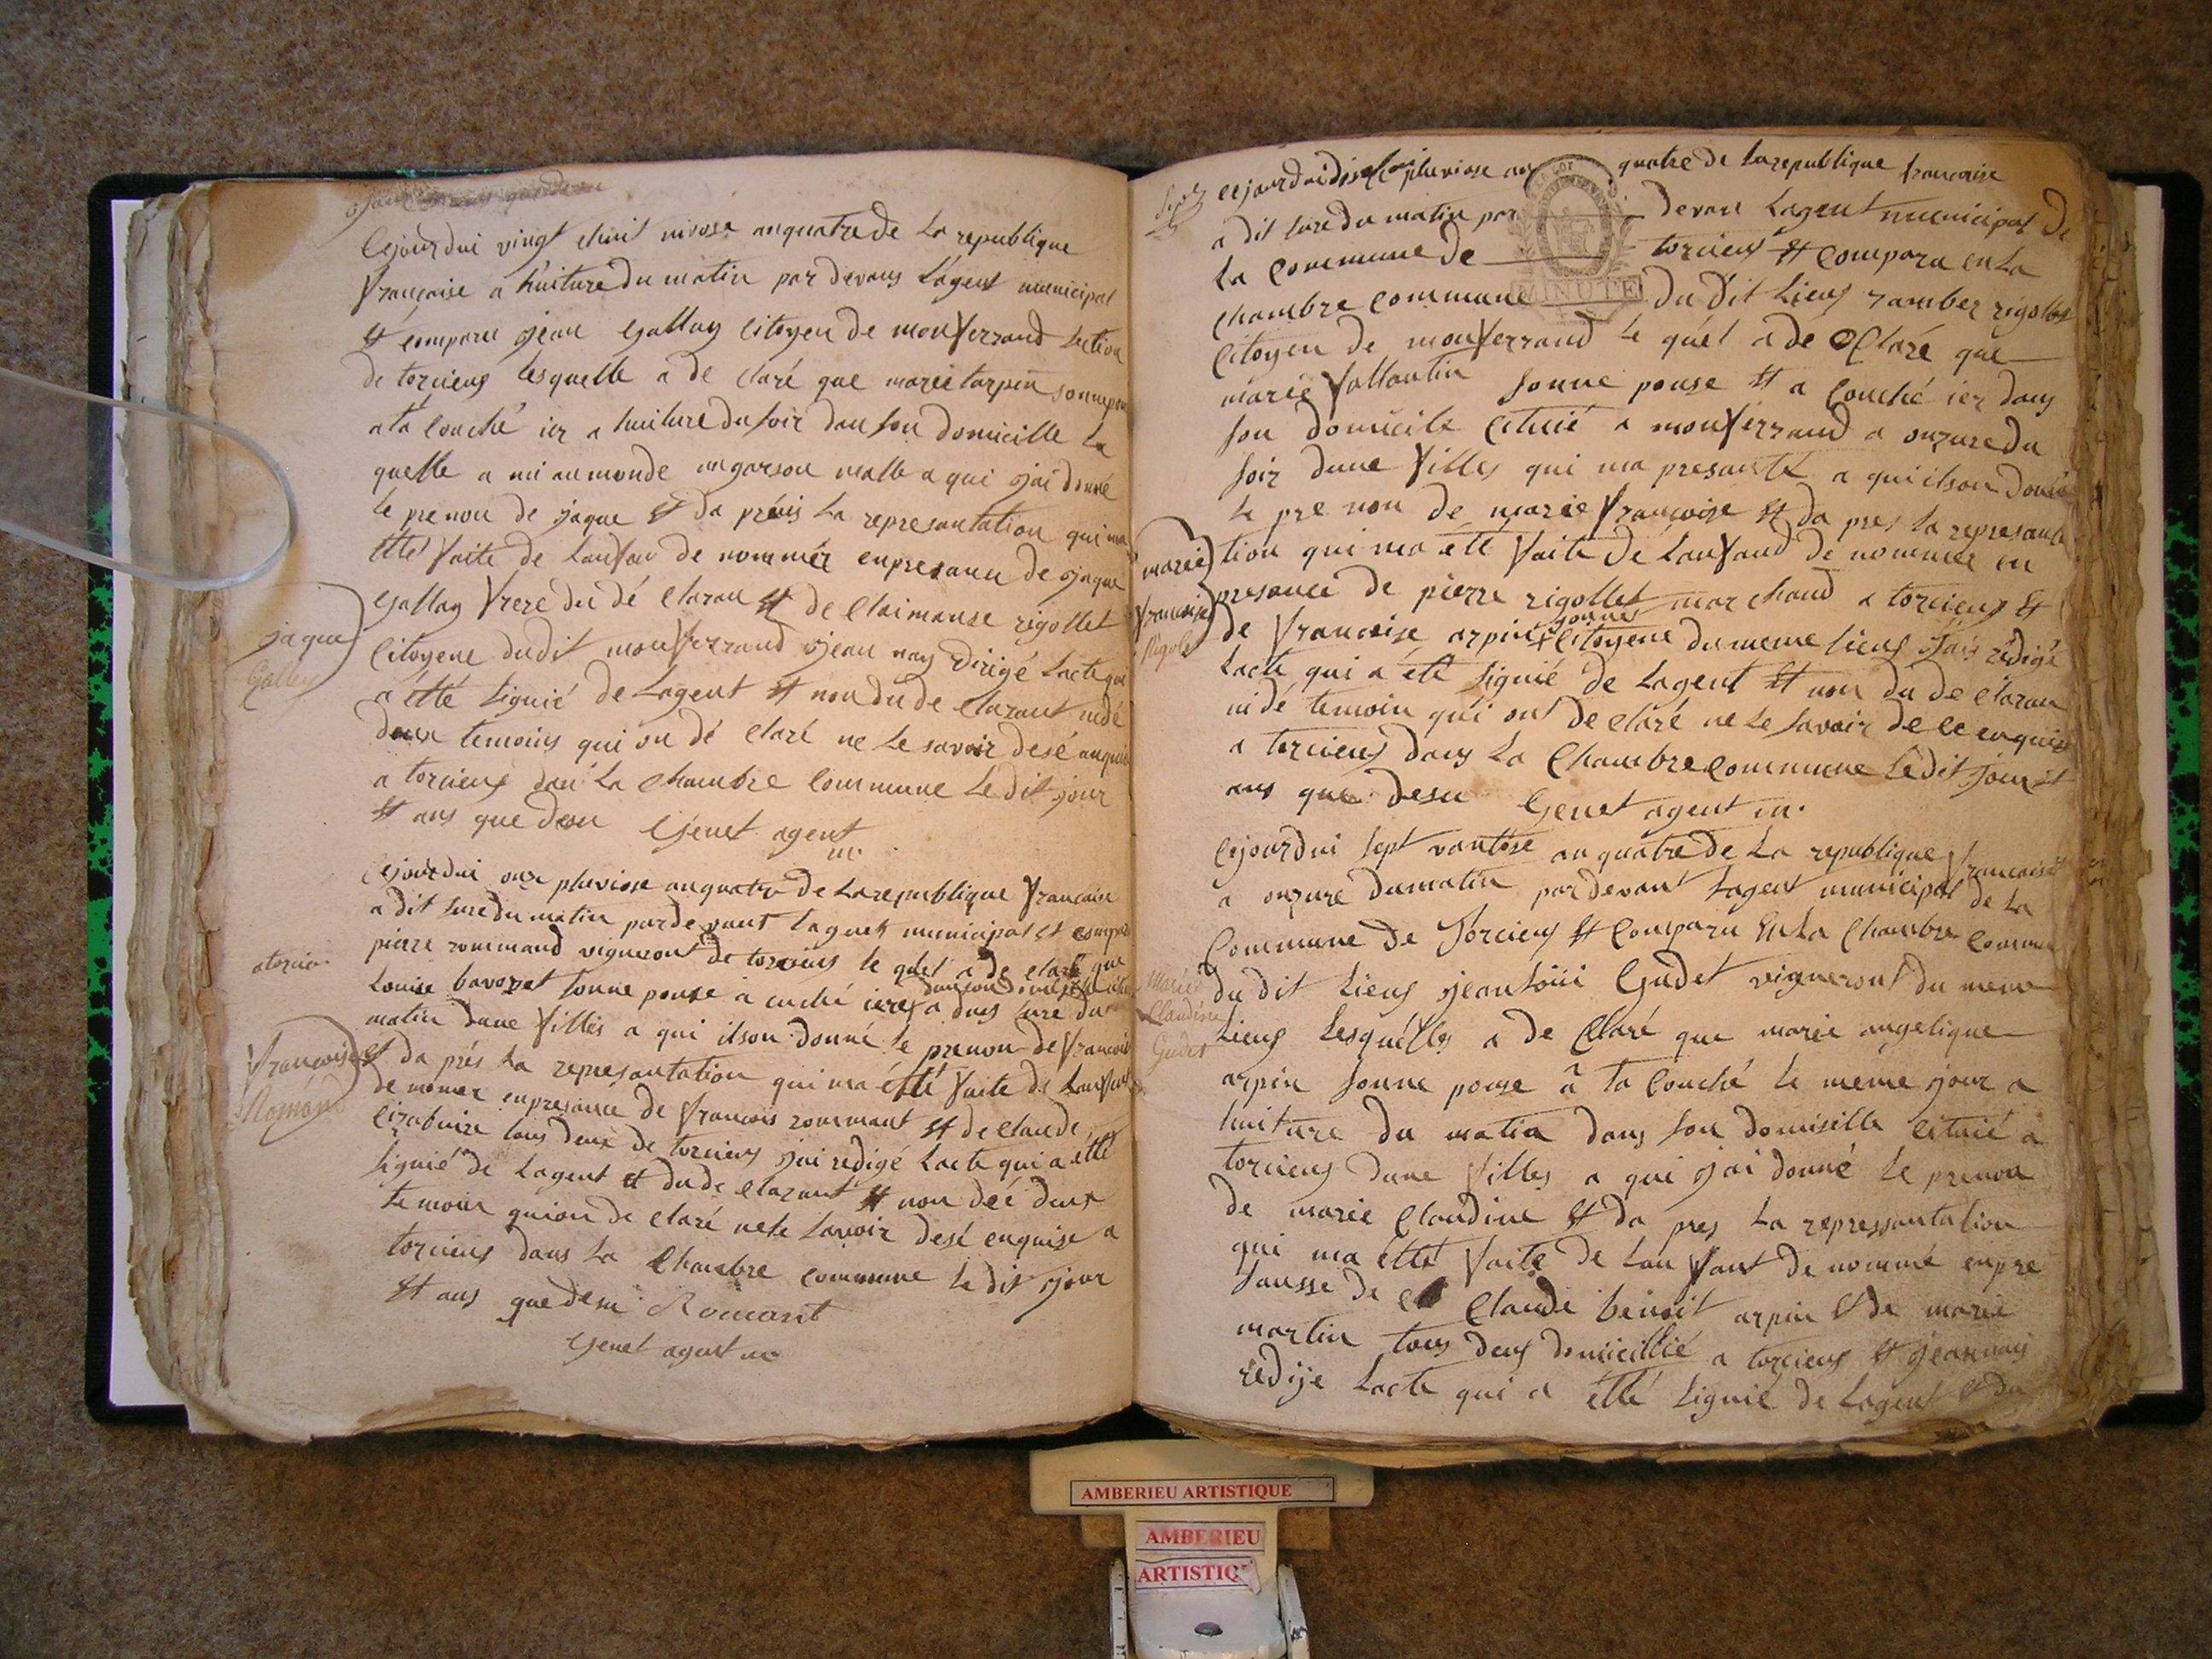 Cejourdui vingt chuit nivose anquatre de la republique
française a huiture du matin par devans L'agent municipal
st comparu jean Gallay Citoyen de monferrand section
de torcieus lesquelle a de claré que marie tarpin sonnepou
ata Couché ier a huiture du soir dan son domicille La
quelle a mi au monde un garson malle a qui jai donné
le prenon de jaque st da préis La represantation qui ma
étté faite de Lanfan de nommér enpresance de jaque
Gallay frere du dé claran st de Claimanse rigollet
jaque
Galley
Citoyene dudit monferrand jean nay dirigé Lacte qui
a étté signié de Lagent st non du de clarant nidé
deux temoins qui on dé claré ne le savoir desé anquis
a torcieus dan La chambre Commune Le dit jour
st ans que desu Genet agent
m.
Cejourdui onze pluviose anquatre de La republique française
a dit sure du matin par devant Lagent municipal st compar
pierre rommand vigneront de torcieus le quél a de claré que
atorcieu
Louise bavozet sonne pouse a cuché ier a dues sure du
dan son domicille
matin dune filles a qui ilson donné le prenon de francois
st da prés La represantation qui ma étté faite de Lanfans
francoise
Romand
de nomer enpresance de francois rommant st de Claude
tous deux de torcieus jai redigé Lacte qui a étté
signié de Lagent st du de clarant st non dée deux
temoin quion de claré nele savoir desé enquise a
torcieus dans La Chambre commune Le dit jour
st ans que desu Romant
Genet agent m
Cejourdui pluviose an quatre de La republique francaise
a dit sure du matin par devan Lagent municipal de
La Commune de torcieus st Comparu en La
MINUTE
chambre Commune du dit Lieus ramber rigollet
Citoyen de monferrand le quél a de Claré que
marie Vallantin sonne pouse st a Couché ier dans
son domicile Cituié a monferrand a onzure du
soir dune filles qui ma presanté a qui ilson donné
le pre non de marie francoise st da pres la represanta
marie
francoise
Rigolet
tion qui ma été faite de Lanfand de nommér en
presance de pierre rigollet marchand a torcieus st
de francoise arpin Citoyene du meme lieus Jais rédigé
jonne
Lacte qui a été signié de Lagent st non du de claran
ni dé temoin qui ont de claré ne le savoir de ce enquis
a torcieus dans La Chambre Commune Le dit jour st
ans que desu Genet agent m.
Cejourdui sept vantose an quatre de La republique francaise
a onzure du matin par devant Lagent municipal de La
Commune de Torcieus st Comparu En La Chambre Commune
Marie
Claudine
Gudet
du dit Lieus jean Loüi Gudet vigneront du meme
Lieus Lesquélles a de Claré que marie angelique
arpin sonne pouse a ta Couché le même jour a
huiture du matin dans son domiselle Cituié a
torcieus dune filles a qui jai donné le prenon
de marie Claudine st da pres La repressantation
qui ma étté faite de Lan fant de nommé enpre
sansse de Claude benoit arpin st de marie
martin tous deus domicillié a torcieus st
redije Lacte qui a étté signié de Lagent st du
AMBERIEU ARTISTIQUE
AMBERIEU
ARTISTIQ